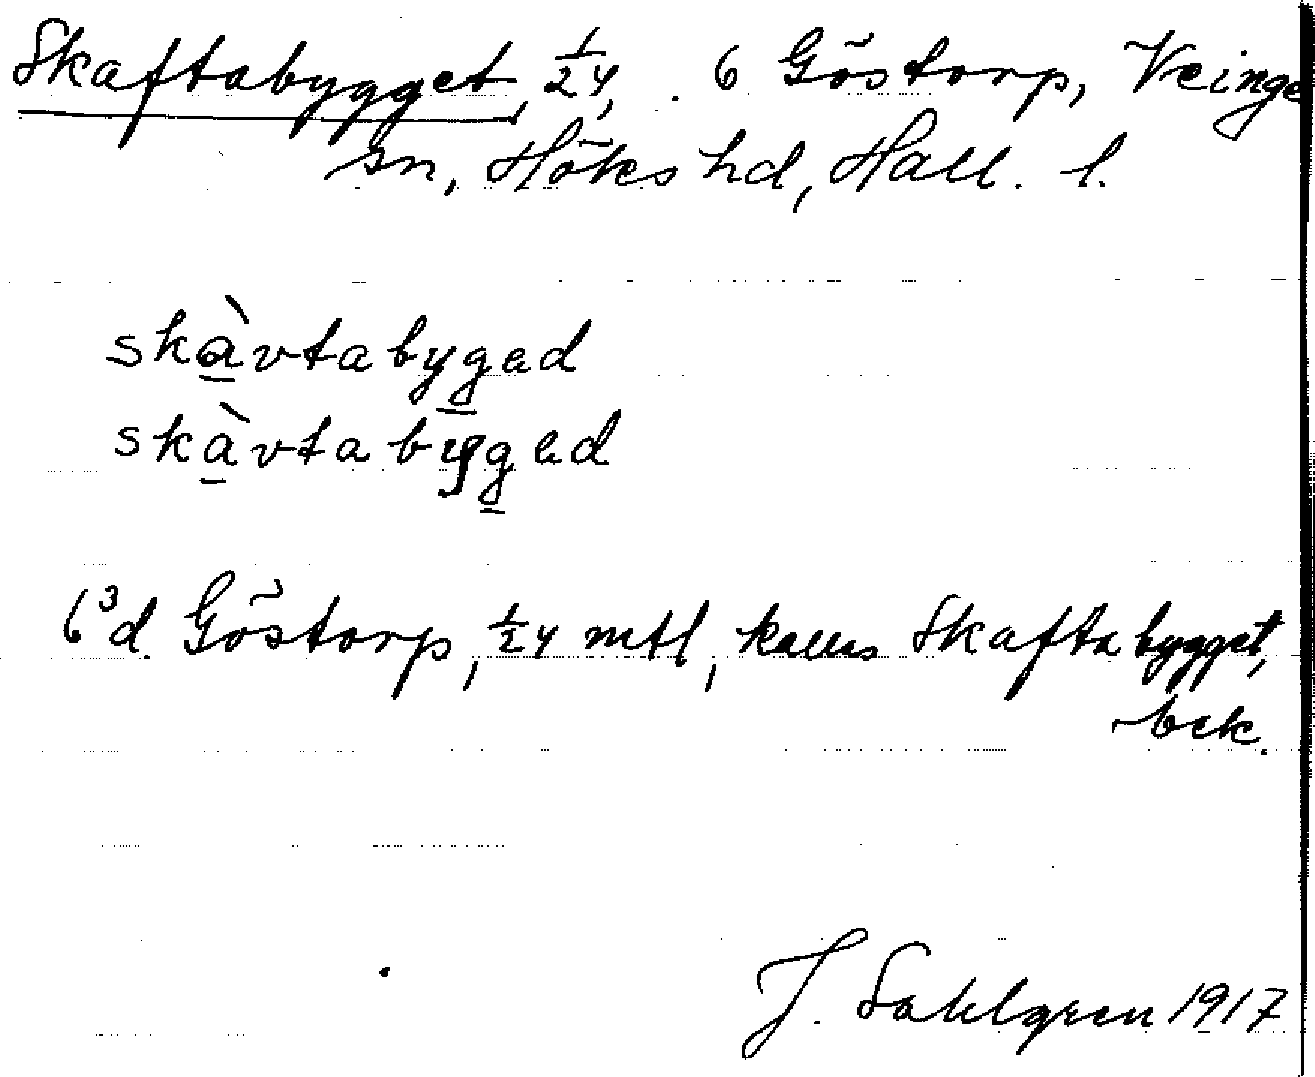 Skaftabygget, 1/24, 6 Göstorp, Veinge
sn, Höks hd, Hall. l.
skàvtabygad
skàvtabygad
6³d Göstorp, 1/24 mtl, kallas Skaftabygget,
bek.
J. Sahlgren 1917